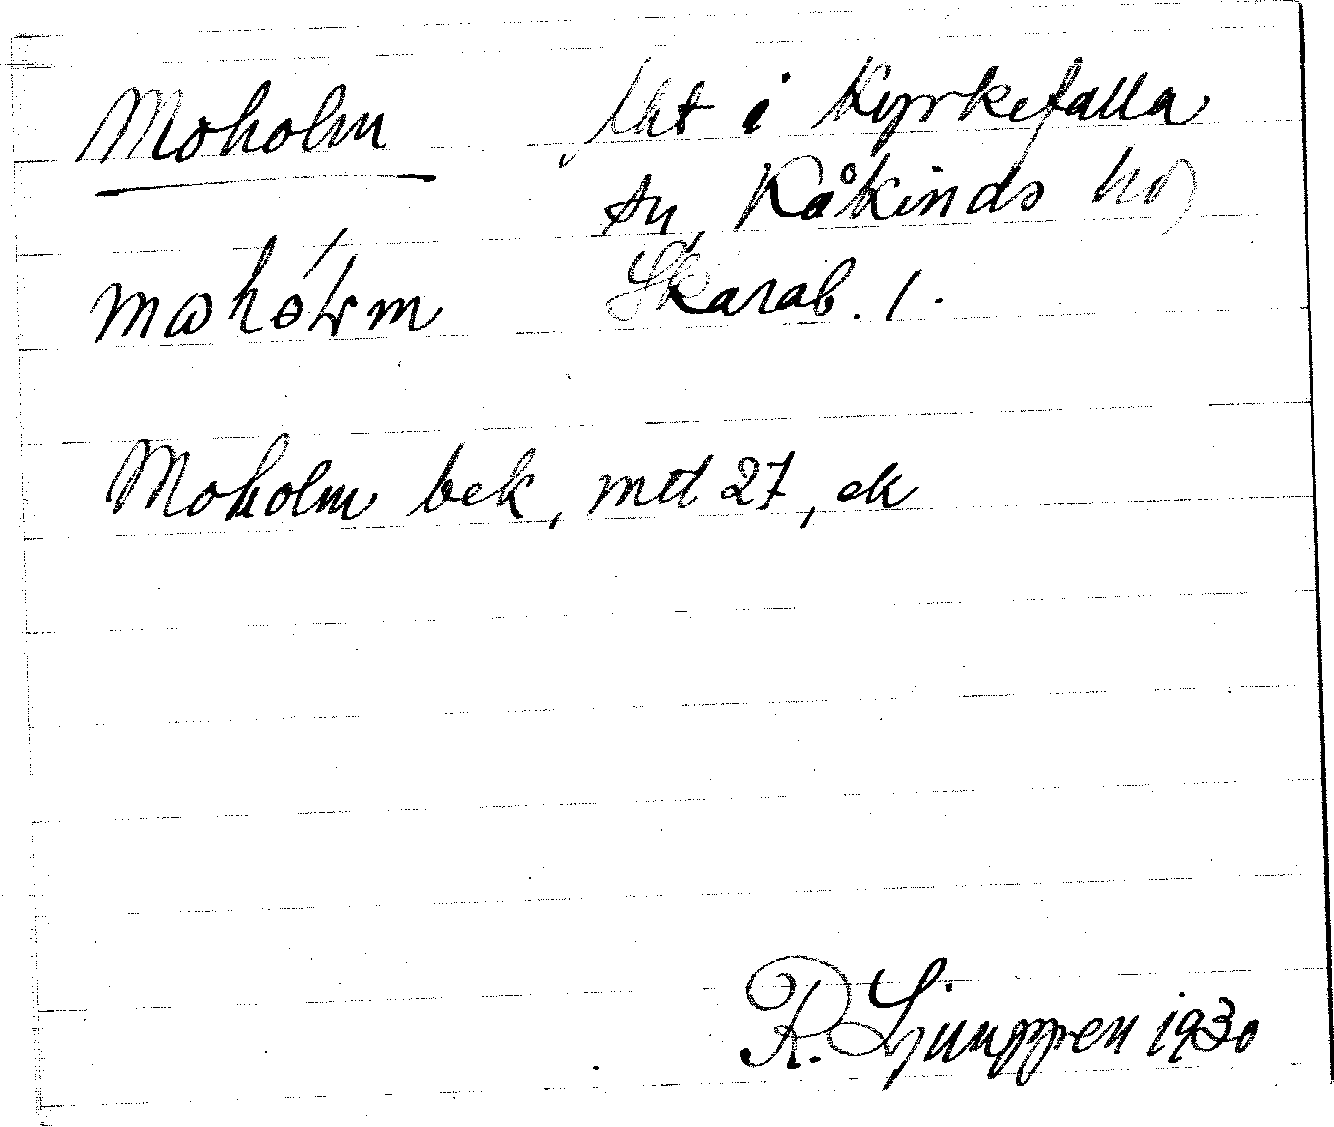 Moholm
Uht i Kyrkefalla
sn, Kåkinds hd
Skarab. l.
Moholm bek, mtl 27, ek
R. Ljunggren 1930